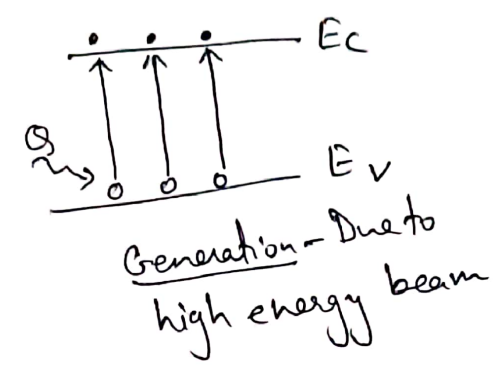 Ec
Q
Ev
Generation - Due to
high energy beam